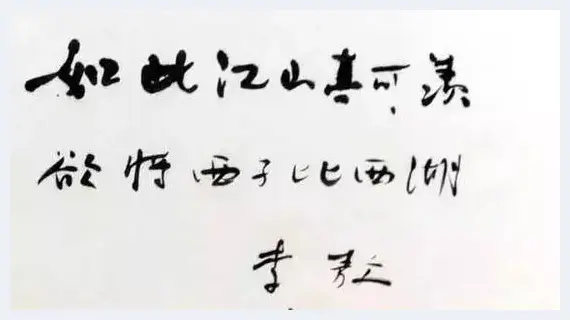 如此江山真可羡
欲将西子比西湖
李敖